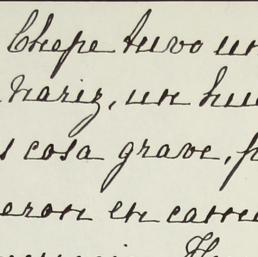 Chepe tuvo un
nariz, un hue
s cosa grave, p
eron en came